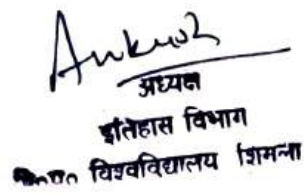 Ankush
अध्यक्ष
इतिहास विभाग
विश्वविद्यालय शिमला